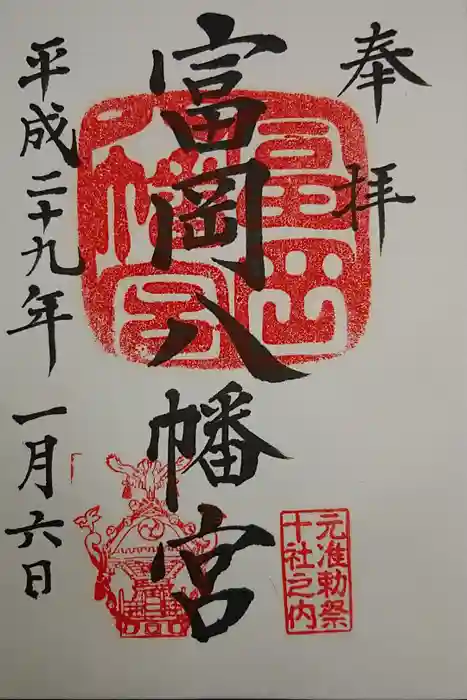 奉拝
富岡八幡宮
平成二十九年一月六日
元准勅祭
十社之内